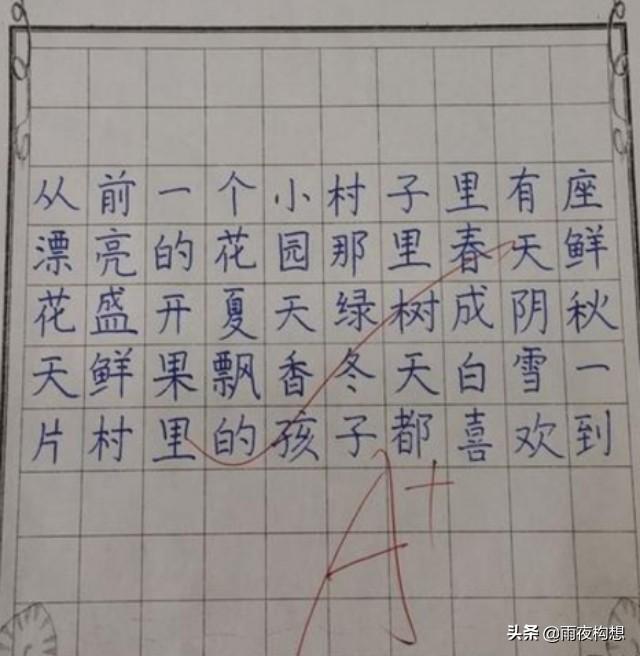 从前一个小村子里有座
漂亮的花园那里春天鲜
花盛开夏天绿树成阴秋
天鲜果飘香冬天白雪一
片村里的孩子都喜欢到
A+
头条 @雨夜构想